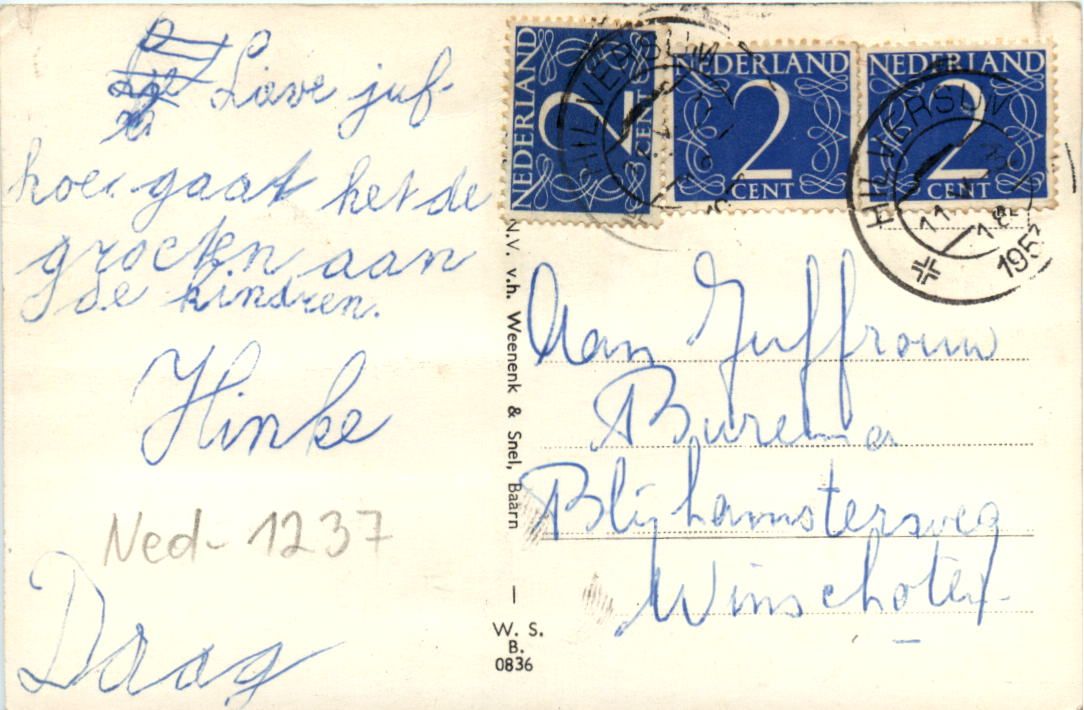 Lieve juf-
hoe gaat het de
groeten aan
de kindren.
Hinke
Ned-1237
Daag
N.V. v.h. Weenenk & Snel, Baarn
W. S.
B.
0836
NEDERLAND
2
CENT
NEDERLAND
2
CENT
NEDERLAND
2
CENT
HILVERSUM
HILVERSUM
1953
Aan Juffrouw
Burema
Blijhamsterweg
Winschoten